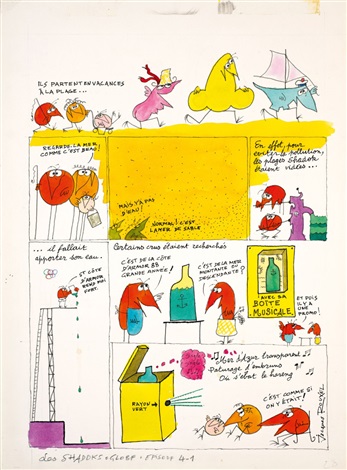 ILS PARTENT EN VACANCES
À LA PLAGE...
REGARDE LA MER
COMME C'EST BEAU!
MAIS Y'A PAS
D'EAU!
NORMAL! C'EST
LA MER DE SABLE
En effet, pour
éviter la pollution,
les plages Shadok
étaient vides...
... il fallait
apporter son eau..
Certains crus étaient recherchés
C'EST DE LA CÔTE
D'ARMOR 88
GRANDE ANNÉE!
C'EST DE LA MER
MONTANTE OU
DESCENDANTE?
AVEC SA
BOÎTE
MUSICALE
ET PUIS
IL Y A
UNE
PROMO!
ET CÔTE
D'ARMOR
REND MOI
VERT.
Mer d'Azur transparent
Paturage d'embruns
Où s'ébat le hareng
RAYON
VERT
C'EST COMME SI
ON Y ÉTAIT!
les SHADOKS